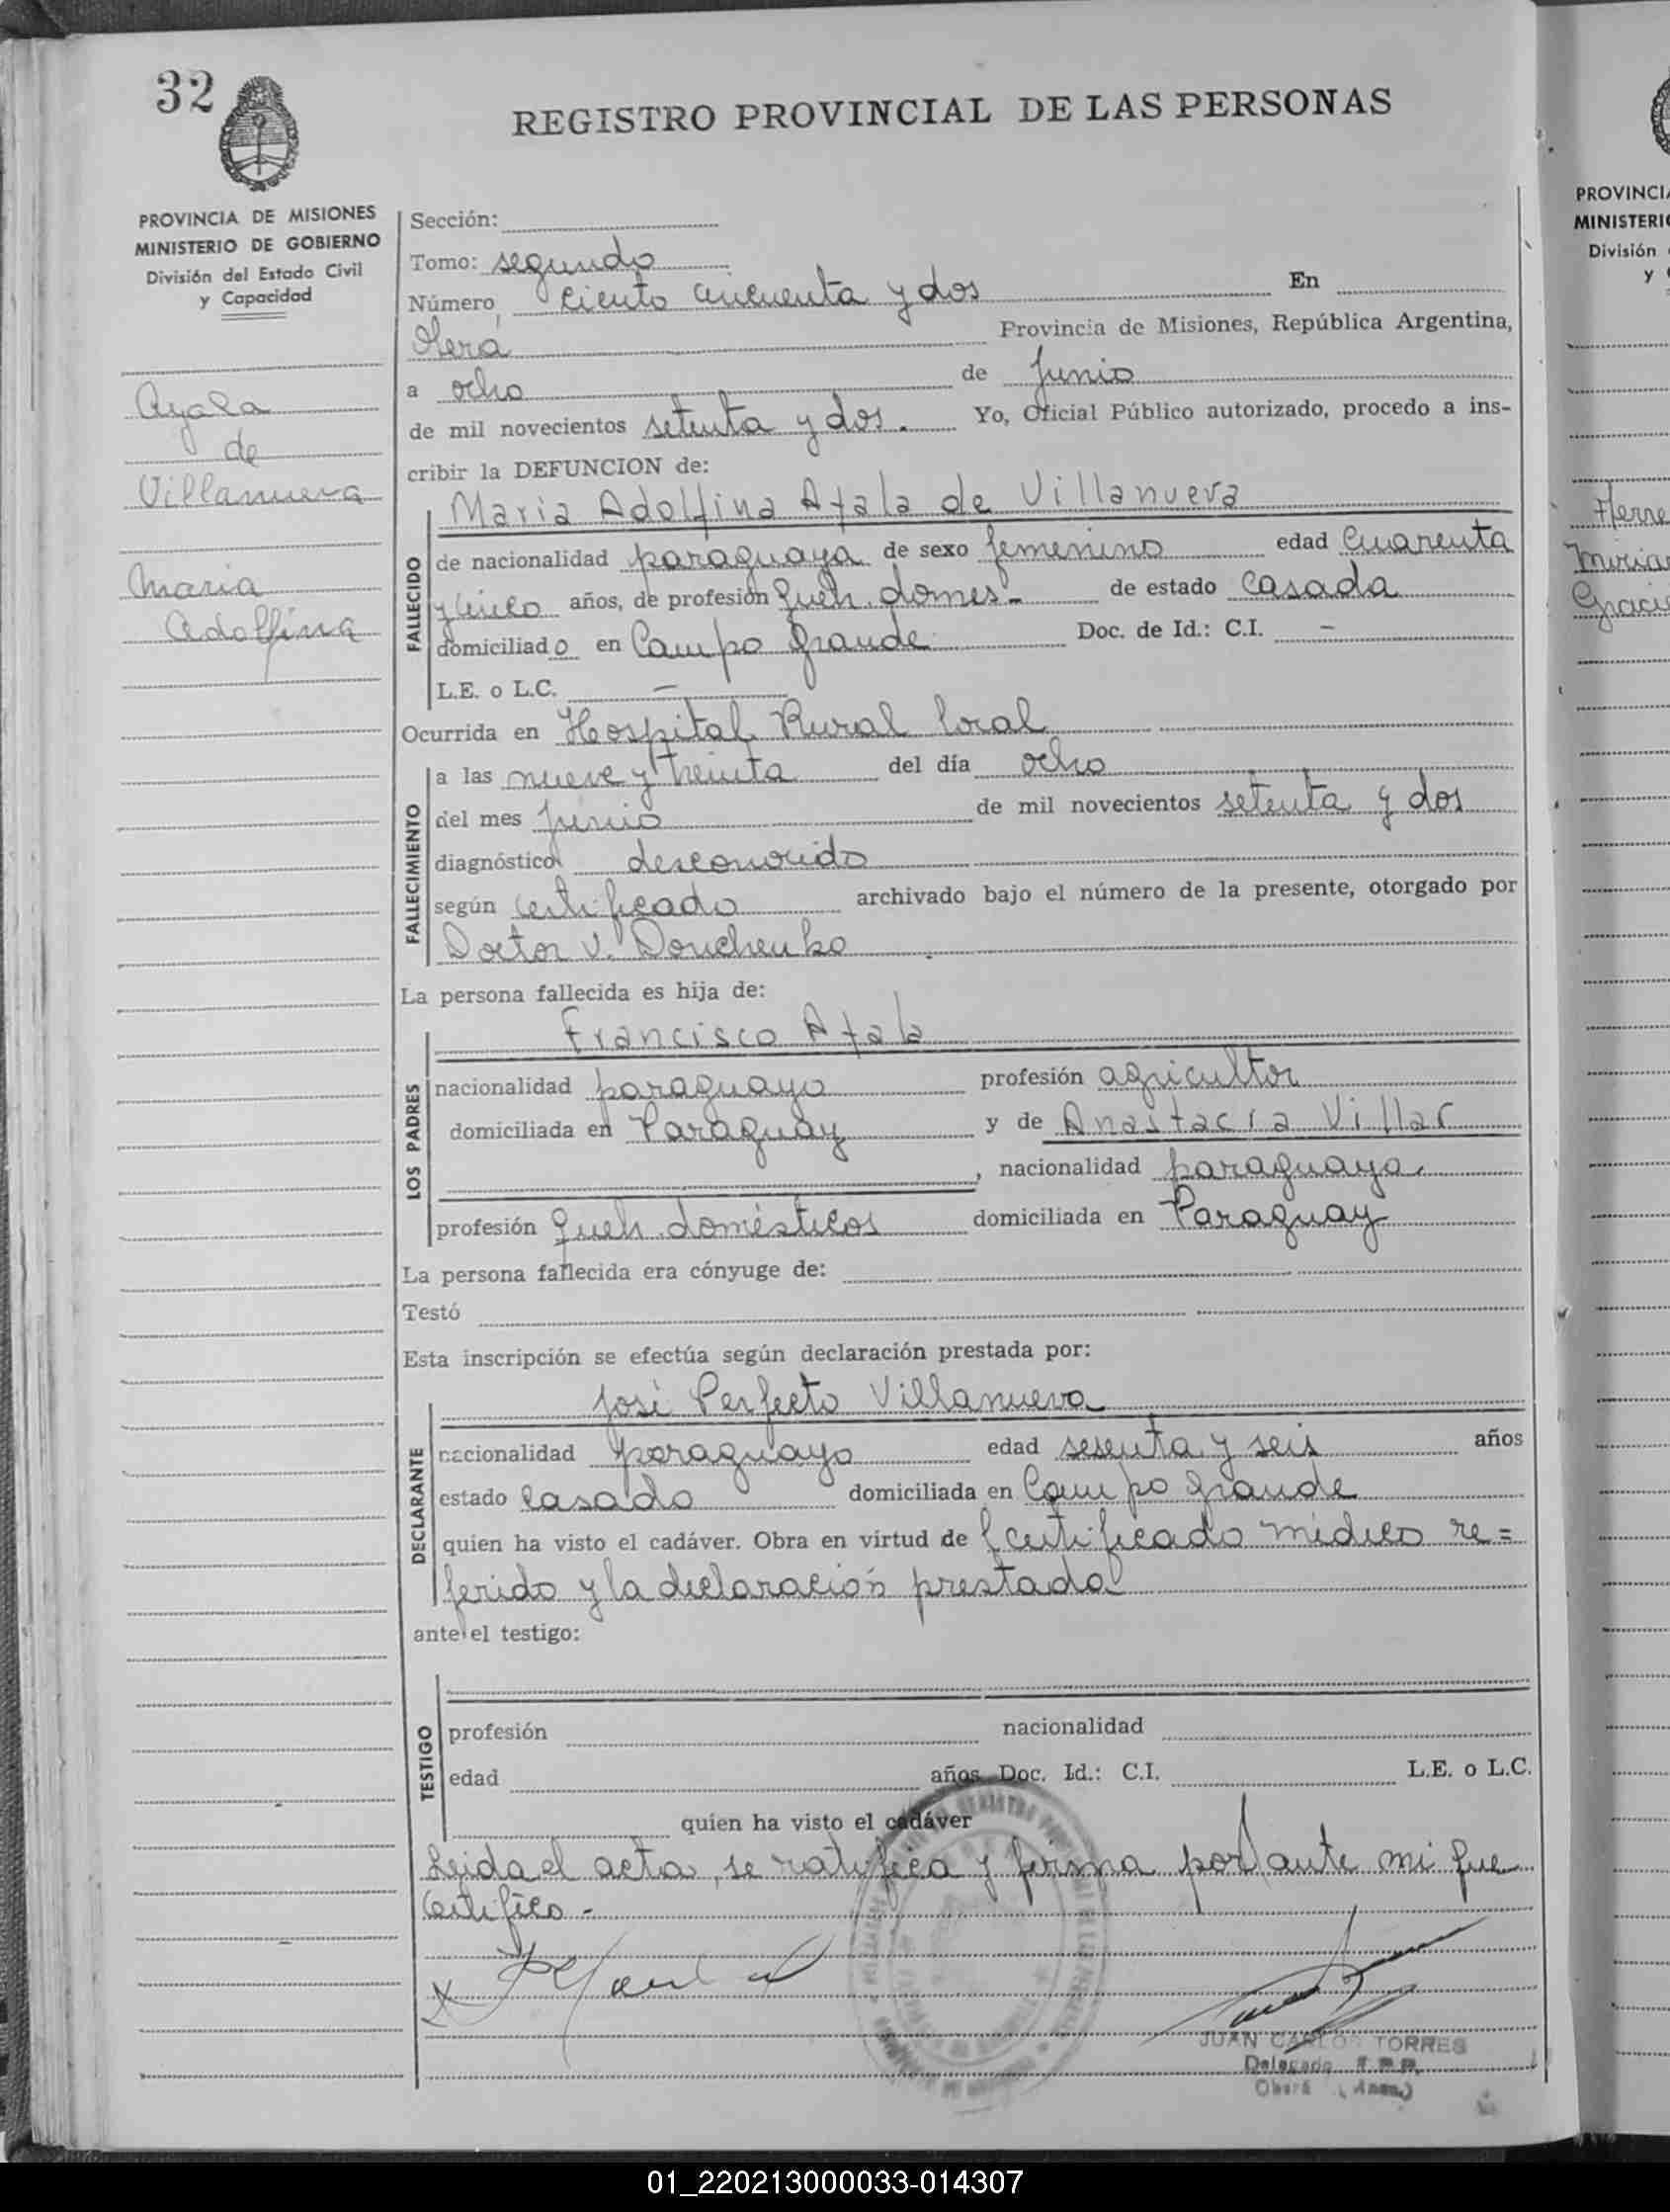 32
REGISTRO PROVINCIAL DE LAS PERSONAS
PROVINCIA DE MISIONES
MINISTERIO DE GOBIERNO
División del Estado Civil
y Capacidad
Ayala
de
Villanueva
Maria
Adolfina
Sección:
Tomo: segundo
Número ciento cincuenta y dos En
Oberá Provincia de Misiones, República Argentina,
a ocho de Junio
de mil novecientos setenta y dos. Yo, Oficial Público autorizado, procedo a ins-
cribir la DEFUNCION de:
Maria Adolfina Ayala de Villanueva
FALLECIDO
de nacionalidad paraguaya de sexo femenino edad Cuarenta
y cinco años, de profesión queh. domes- de estado Casada
domiciliado en Campo Grande Doc. de Id.: C.I. -
L.E. o L.C. -
Ocurrida en Hospital Rural local
FALLECIMIENTO
a las nueve y treinta del día ocho
del mes junio de mil novecientos setenta y dos
diagnóstico desconocido
según certificado archivado bajo el número de la presente, otorgado por
Doctor V. Douchenko
La persona fallecida es hija de:
Francisco Ayala
LOS PADRES
nacionalidad paraguayo profesión agricultor
domiciliada en Paraguay y de Anastacia Villar
, nacionalidad paraguaya
profesión queh. domésticos domiciliada en Paraguay
La persona fallecida era cónyuge de:
Testó
Esta inscripción se efectúa según declaración prestada por:
José Perfecto Villanueva
DECLARANTE
nacionalidad paraguayo edad sesenta y seis años
estado Casado domiciliada en Campo Grande
quien ha visto el cadáver. Obra en virtud de certificado médico re=
ferido y la declaración prestada
ante el testigo:
TESTIGO
profesión nacionalidad
edad años Doc. Id.: C.I. L.E. o L.C.
quien ha visto el cadáver
Leida el acta, se ratifica y firma por ante mi que
Certifico -
X
JUAN CARLOS TORRES
Delegado
Oberá
PROVINCIA
MINISTERIO
División
y
Herre
Miriam
Graci
01_220213000033-014307